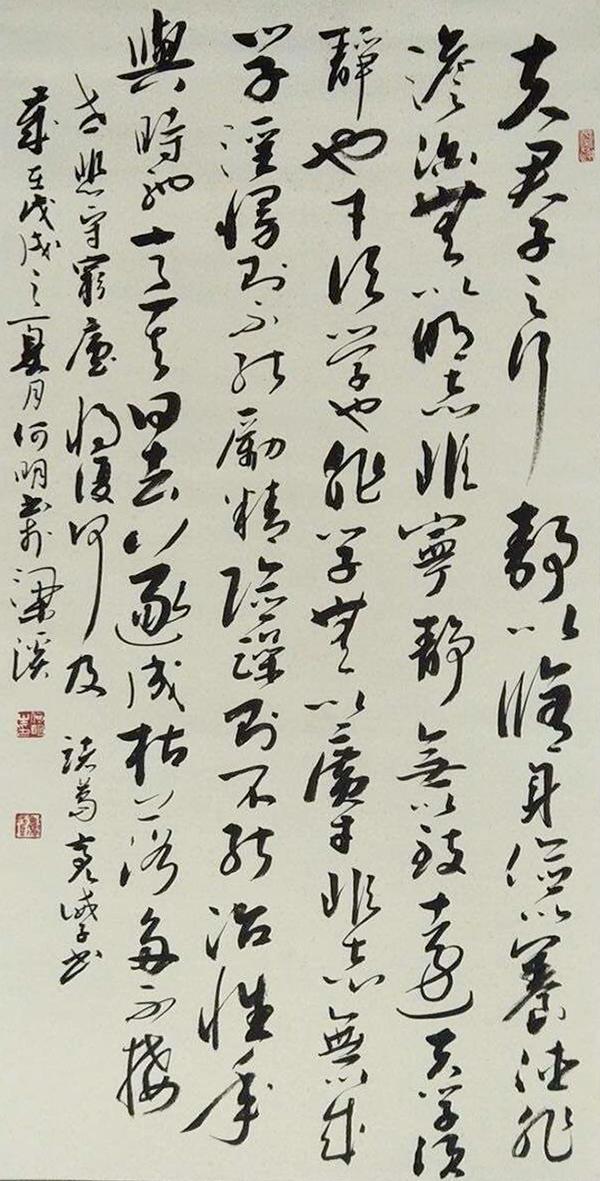 夫君子之行靜以脩身儉以養德非
澹泊無以明志非寧靜無以致遠夫学須
靜也才須学也非学無以廣才非志無以成
学淫慢則不能勵精險躁則不能治性年
與時馳意與日去遂成枯落多不接
世悲守窮廬將復何及 諸葛亮誡子書
歲在戊戌之夏月何明書於梁溪